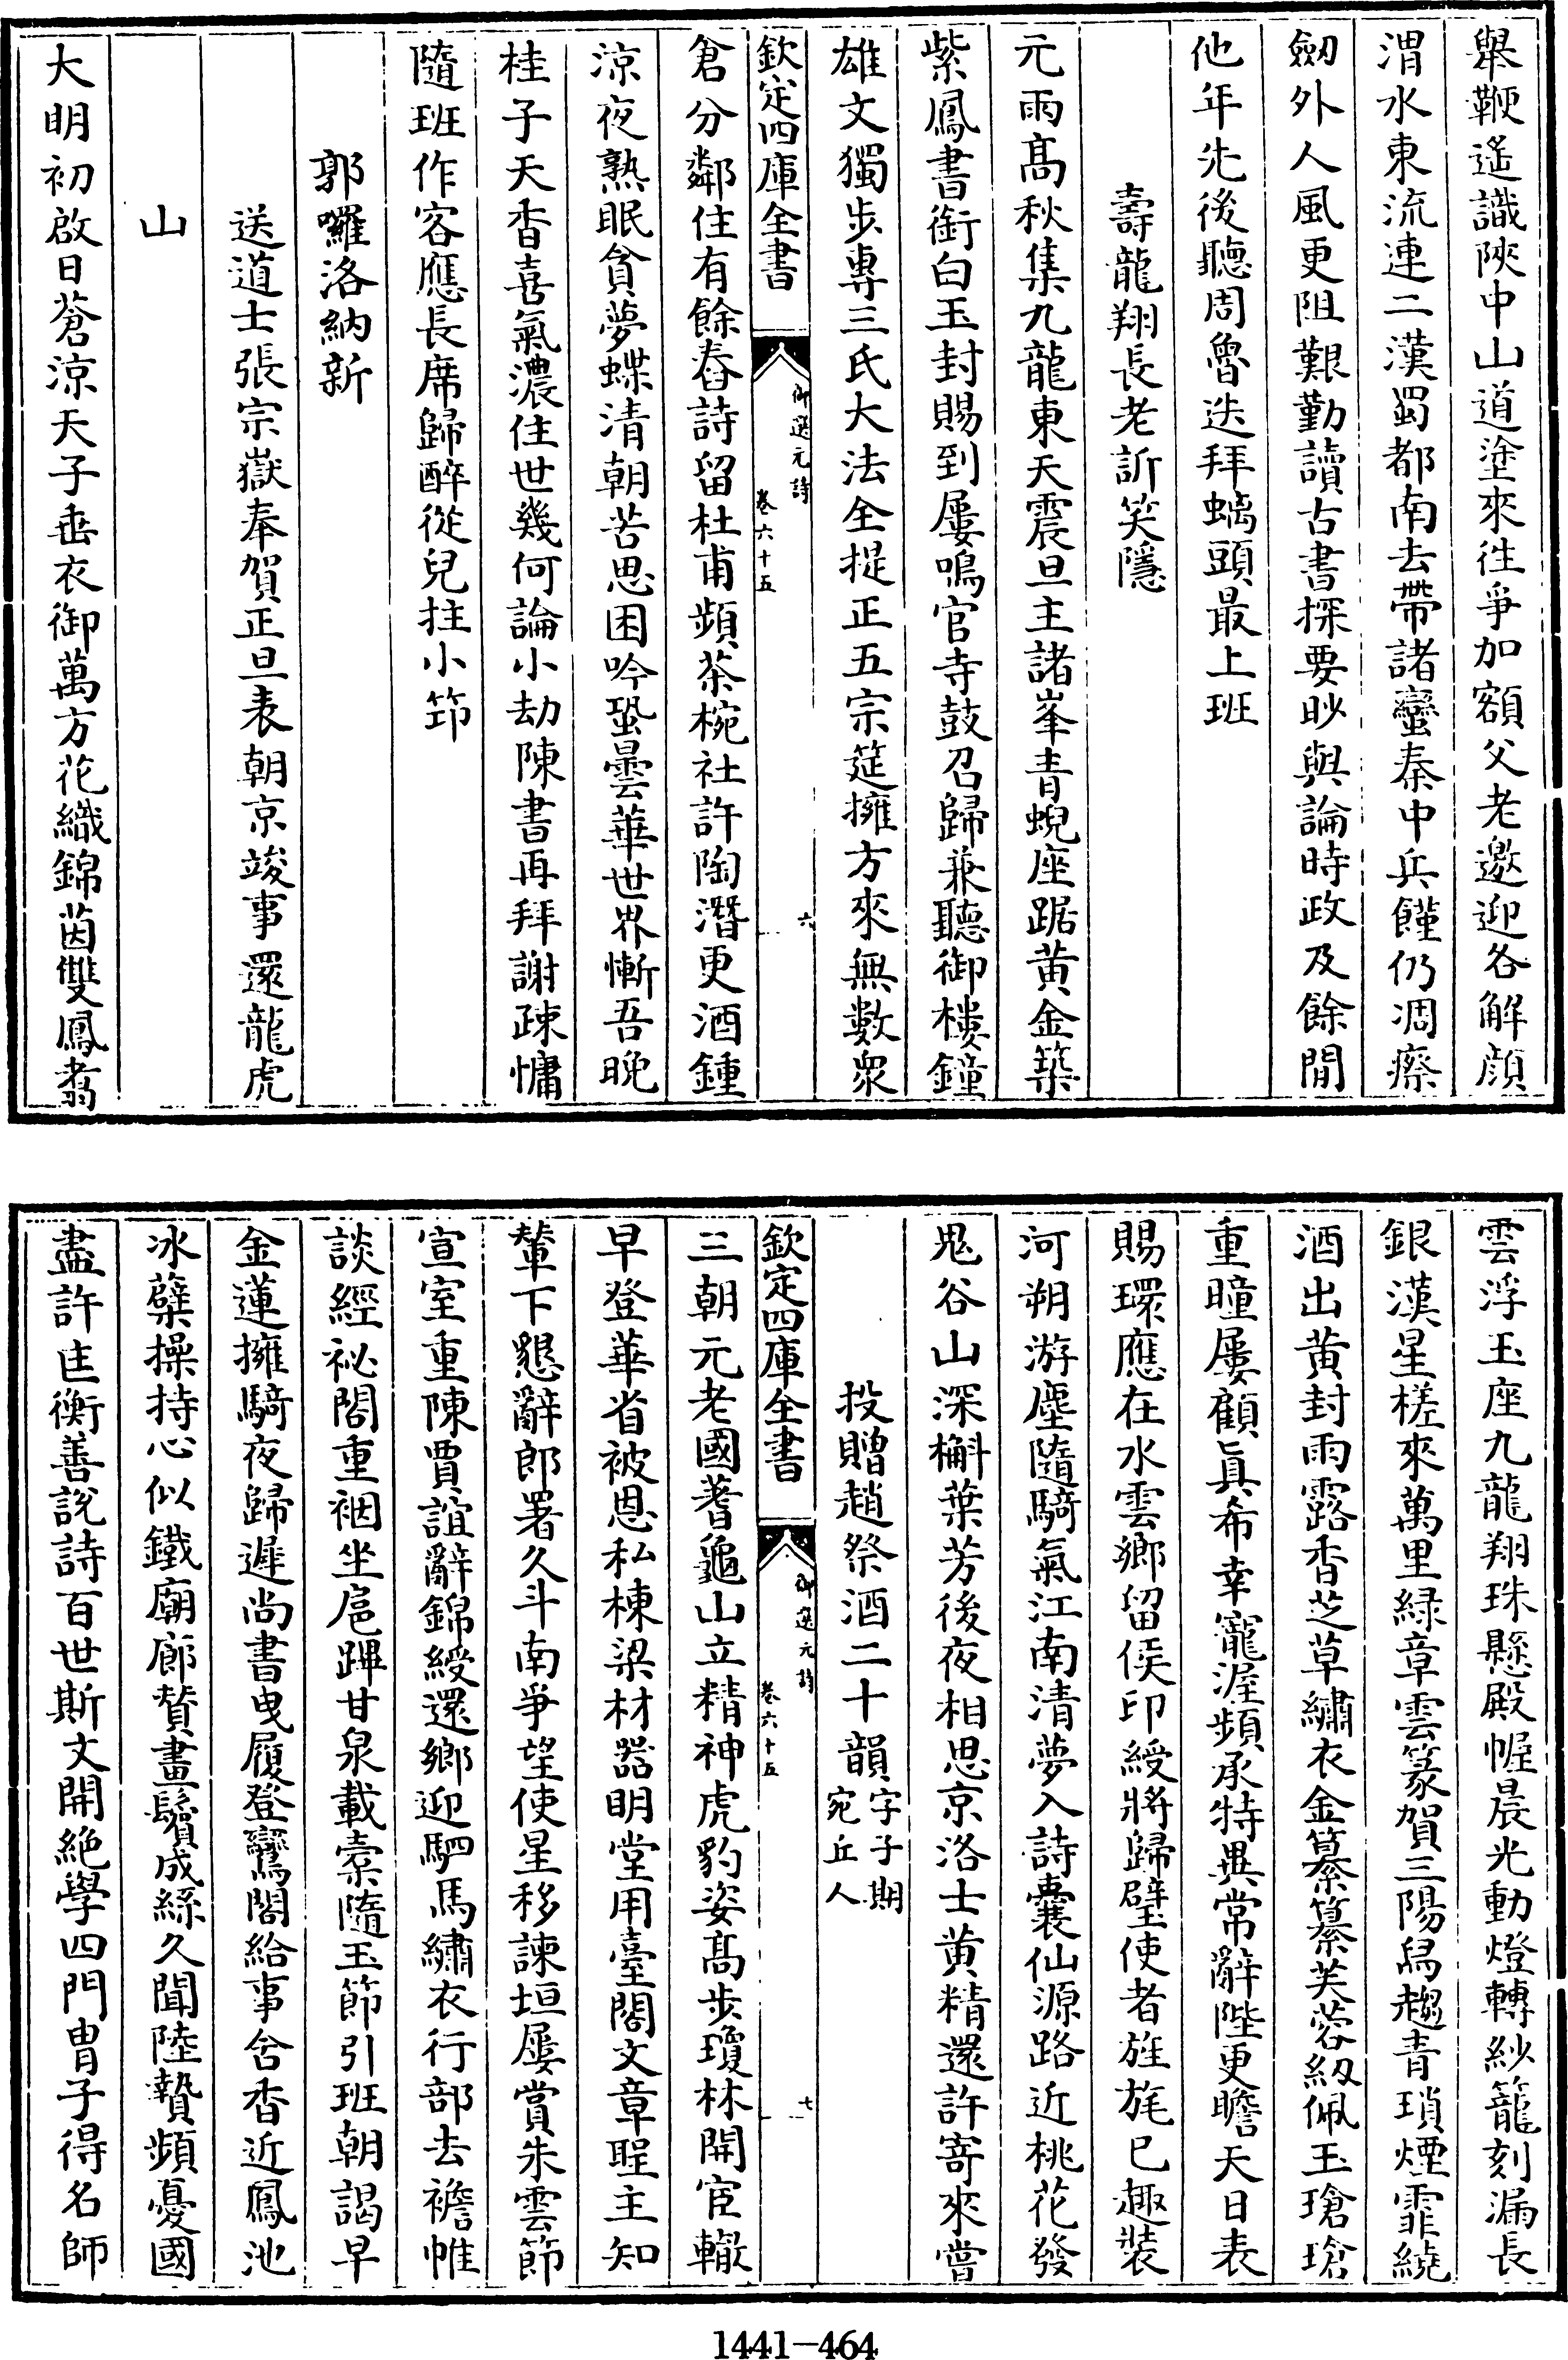 舉鞭遥識陜中山道塗來往爭加額父老邀迎各解顔
渭水東流連二漢蜀都南去帶諸蠻秦中兵饉仍凋瘵
劒外人風更阻艱勤讀古書探要眇與論時政及餘閒
他年先後聽周魯迭拜螭頭最上班
壽龍翔長老訢笑隱
元雨髙秋集九龍東天震旦主諸峯青蜺座踞黄金築
紫鳳書銜白玉封賜到屢鳴官寺鼓召歸兼聽御樓鐘
雄文獨步專三氏大法全提正五宗筵擁方來無數衆
欽定四庫全書
御選元詩
卷六十五
六
倉分鄰住有餘舂詩留杜甫頻茶椀社許陶潛更酒鍾
涼夜熟眠貪夢蝶清朝苦思困吟蛩曇華世界慚吾晚
桂子天香喜氣濃住世幾何論小劫陳書再拜謝疎慵
隨班作客應長席歸醉從兒拄小筇
郭囉洛納新
送道士張宗嶽奉賀正旦表朝京竣事還龍虎
山
大明初啟日蒼涼天子垂衣御萬方花織錦茵雙鳳翥
雲浮玉座九龍翔珠懸殿幄晨光動燈轉紗籠刻漏長
銀漢星槎來萬里緑章雲篆賀三陽舄趨青瑣煙霏繞
酒出黄封雨露香芝草繡衣金纂纂芙蓉紉佩玉瑲瑲
重瞳屢顧眞希幸寵渥頻承特異常辭陛更瞻天日表
賜環應在水雲鄉留侯印綬將歸璧使者旌旄已趣裝
河朔游塵隨騎氣江南清夢入詩囊仙源路近桃花發
鬼谷山深槲葉芳後夜相思京洛士黄精還許寄來嘗
投贈趙祭酒二十韻字子期宛丘人
欽定四庫全書
御選元詩
卷六十五
七
三朝元老國蓍龜山立精神虎豹姿髙步瓊林開宦轍
早登華省被恩私棟梁材器明堂用臺閣文章聖主知
輦下懇辭郎署久斗南爭望使星移諫垣屢賞朱雲節
宣室重陳賈誼辭錦綬還鄉迎駟馬繡衣行部去襜帷
談經祕閣重裀坐扈蹕甘泉載橐隨玉節引班朝謁早
金蓮擁騎夜歸遲尚書曵履登鸞閣給事含香近鳳池
冰蘖操持心似鐵廟廊贊畫鬢成絲久聞陸贄頻憂國
盡許匡衡善說詩百世斯文開絶學四門胄子得名師
1441-464